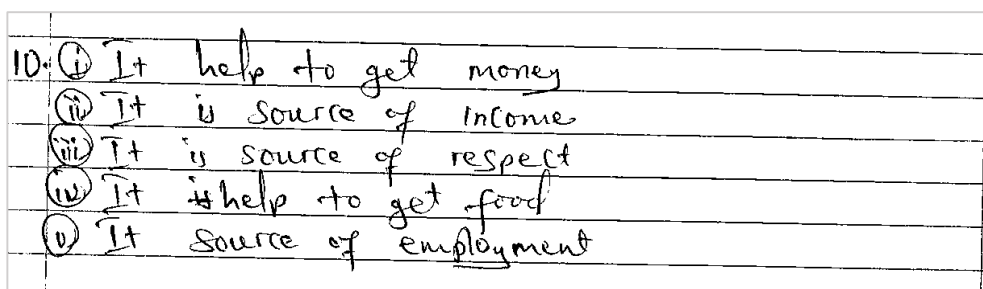 10. (i) It help to get money
(ii) It is source of income
(iii) It is source of respect
(iv) It help to get food
(v) It source of employment